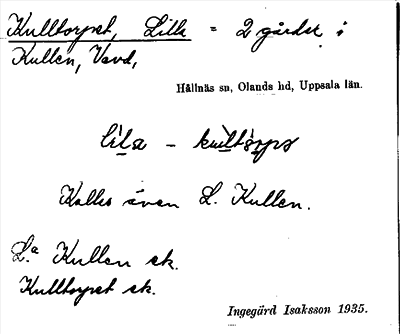 Kulltorpet, Lilla = 2 gårdar i
Kullen, Vavd,
Hållnäs sn, Olands hd, Uppsala län.
lila - kultårps
Kallas även L. Kullen.
L:a Kullen ek.
Kulltorpet ek.
Ingegärd Isaksson 1935.